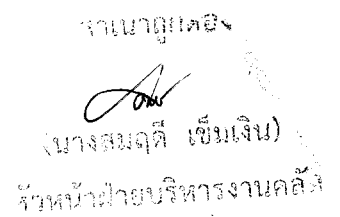 สำเนาถูกต้อง
(นางสมฤดี เข็มเงิน)
หัวหน้าฝ่ายบริหารงานคลัง